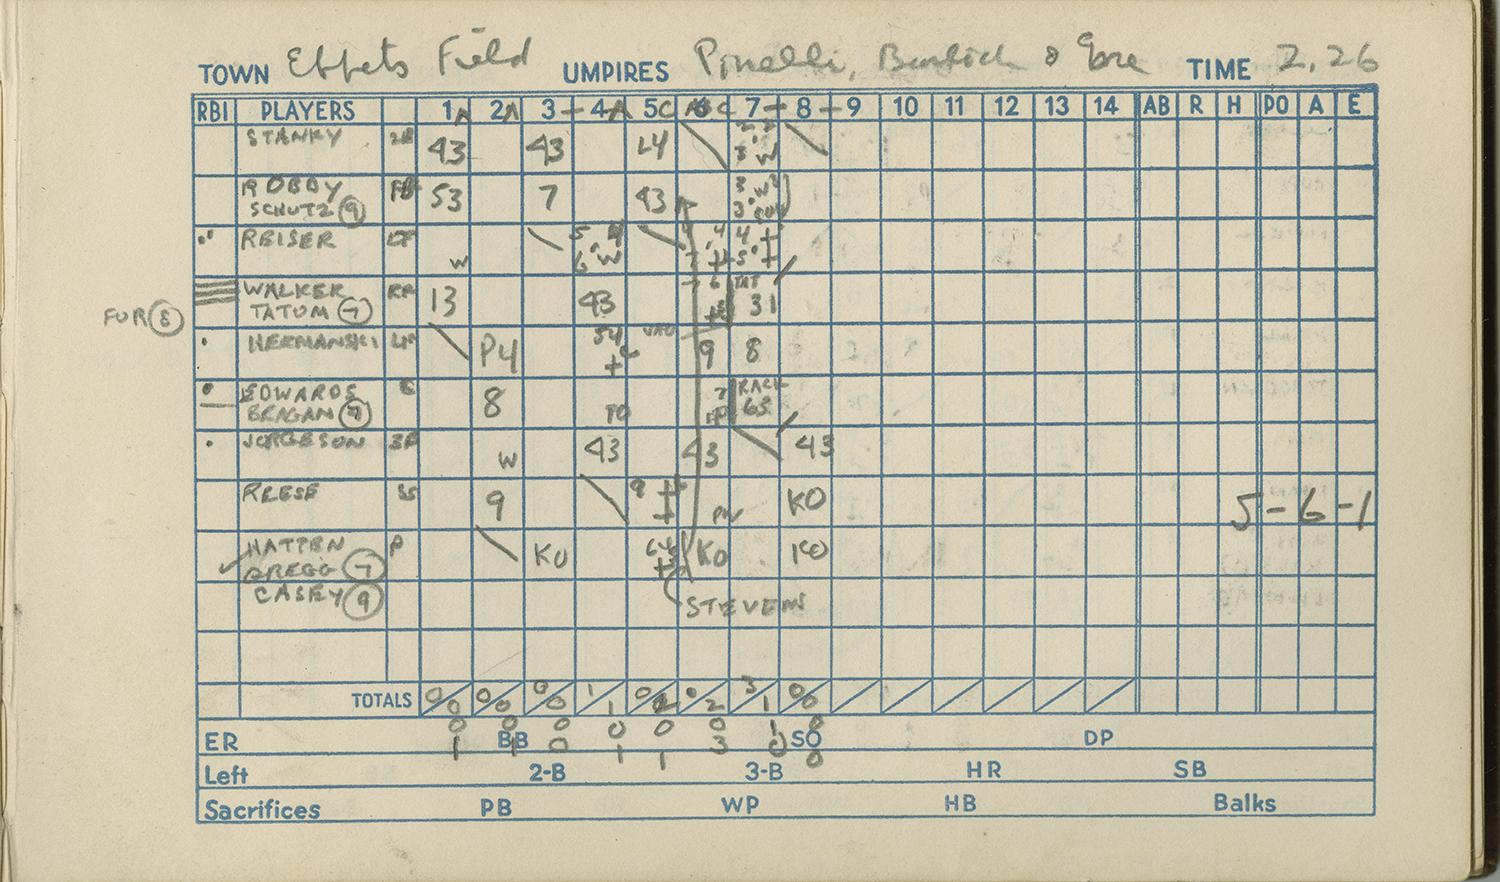 TOWN Ebbets Field UMPIRES Pinelli, Barlick & Gore TIME 2,26
RBI PLAYERS 1A 2A 3- 4A 5C 6 C 7- 8- 9 10 11 12 13 14 AB R H PO A E
STANKY 2B 43 43 L4 3 W
ROBBY FB 53 7 43
SCHUTZ (9)
REISER W 6 W
WALKER 13 43 31
TATUM (7)
FUR (8)
HERMANSKI LF P4 9 8
EDWARDS C 8 FO RACK
BRAGAN (7) 65
JORGESON 3B W 43 43 43
REESE SS 9 PW KO 5-6-1
HATTEN P KO KO KO
GREGG (7)
CASEY (9) STEVENS
TOTALS 0/0 0/0 0/0 1/1 0/2 0/2 3/1 0/0
0 0 0 0 0 0 1 0
ER BB SO DP
1 1 0 1 1 3 0 0
Left 2-B 3-B HR SB
Sacrifices PB WP HB Balks